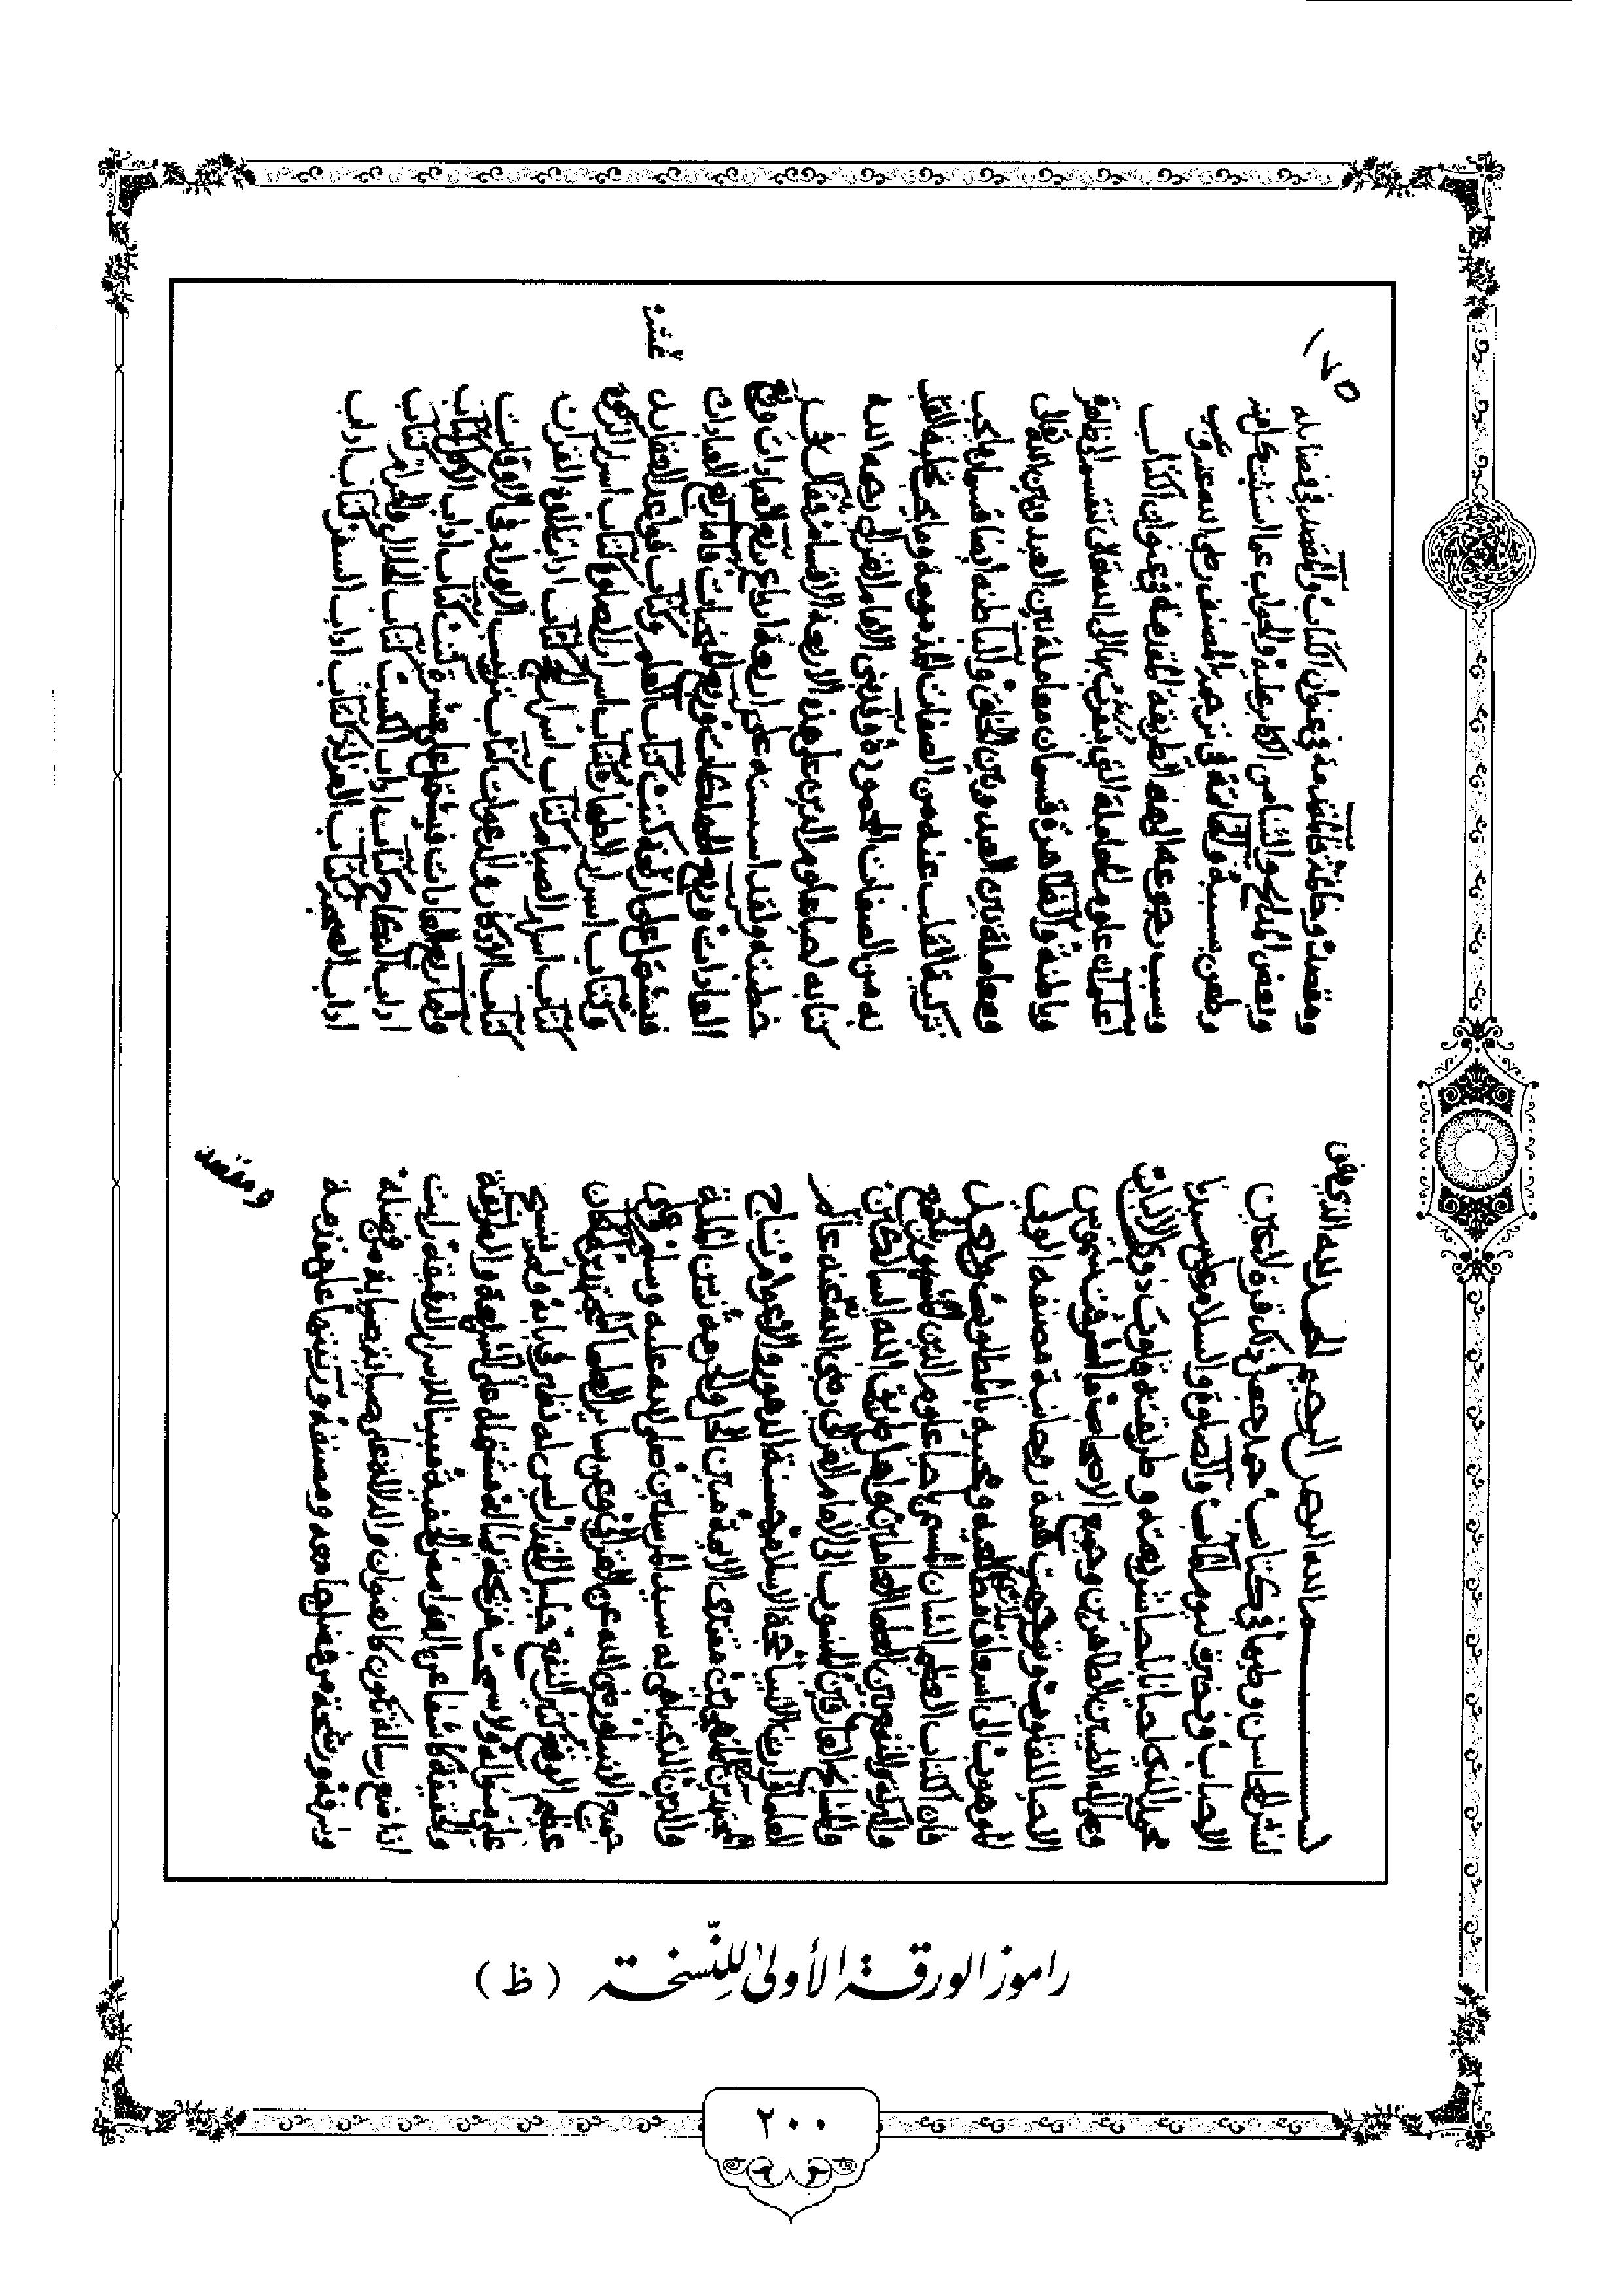 بسم الله الرحمن الرحيم الحمد لله الذي وفق
لنشر المحاسن وطيها في كتاب جعل ذلك قرة لاعين
الاحباب وذخيرة ليوم المآب والصلوة والسلام على سيدنا
محمد الذي احيا شريعته وطريقته قلوب ذوي الالباب
وعلى اله الطيبين الطاهرين وجميع الاصحاب ما اشرقت شموس
الاحيا للقلوب وتوجهت همة روحانية مصنفه الولي
الموهوب الى اسعاف ملازمي مطالعيه ومحبيه بالمطلوب
فان الكتاب العظيم الشان المسمى باحيا علوم الدين المشهور
والبركة والنفع بين العلما العاملين واهل طريق الله السالكين
والمشايخ العارفين المنسوب الى الامام الغزالي رضي الله عنه عالم
العلما وارث الانبيا حجة الاسلام حسنة الدهور والاعوام تاج
المجتهدين مقتدى الائمة مبين الحل والحرمة زين الملة
والدين الذي باهى به سيد المرسلين صلى الله عليه وسلم وعلى
جميع الانبيا ورضي الله عن الغزالي وعن ساير العلما المجتهدين كان
عظيم الوقع كثير النفع جليل المقدار ليس له نظير في بابه ولم ينسج
على منواله ولا سمحت قريحة بمثاله مشتملا على الشريعة والطريقة
والحقيقة كاشفا عن الغوامض الخفية مبينا للاسرار الدقيقة رايت
ان اضع رسالة تكون كالعنوان والدلالة على صبابة من فضله
وشرفه ورشحة من فضل جامعه ومصنفه ورتبتها على مقدمة
ومقصد
١٧٥
ومقصد وخاتمة فالمقدمة في عنوان الكتاب والمقصد في فضايله
وبعض المدايح والثنا من الاكابر عليه والجواب عما استشكل منه
وطعن بسببه والخاتمة في ترجمة المصنف رضي الله عنه
وسبب رجوعه الى هذه الطريقة المقدمة في عنوان الكتاب
اعلم ان علوم المعاملة التي يتقرب بها الى الله تعالى تنقسم الى ظاهرة
وباطنة والظاهرة قسمان معاملة بين العبد وبين الله تعالى
ومعاملة بين العبد وبين الخلق والباطنة ايضا قسمان ما يجب
تزكية القلب عنه من الصفات المذمومة وما يجب تحلية القلب
به من الصفات المحمودة وقد بنى الامام الغزالي رحمه الله
كتابه احيا علوم الدين على هذه الاربعة الاقسام فقال في
خطبته ولقد اسسته على اربعة ارباع ربع العبادات وربع
العادات وربع المهلكات وربع المنجيات فاما ربع العبادات
فيشتمل على عشرة كتب كتاب العلم وكتاب قواعد العقايد
وكتاب اسرار الطهارة وكتاب اسرار الصلوة وكتاب اسرار الزكوة
وكتاب اسرار الصيام وكتاب اسرار الحج وكتاب اداب تلاوة القران
وكتاب الاذكار والدعوات وكتاب ترتيب الاوراد في الاوقات
واما ربع العادات فيشتمل على عشرة كتب كتاب اداب الاكل وكتاب
اداب النكاح وكتاب اداب الكسب وكتاب الحلال والحرام وكتاب
اداب الصحبة وكتاب العزلة وكتاب اداب السفر وكتاب اداب
راموز الورقة الأولى للنّسخة (ظ)
٢٠٠